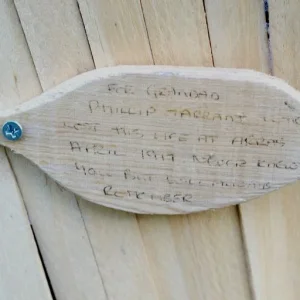 FOR GRANDAD
PHILLIP TARRANT WHO
LOST THIS LIFE AT ARRAS
APRIL 1917 NEVER KNEW
YOU BUT WILL ALWAYS
REMEMBER